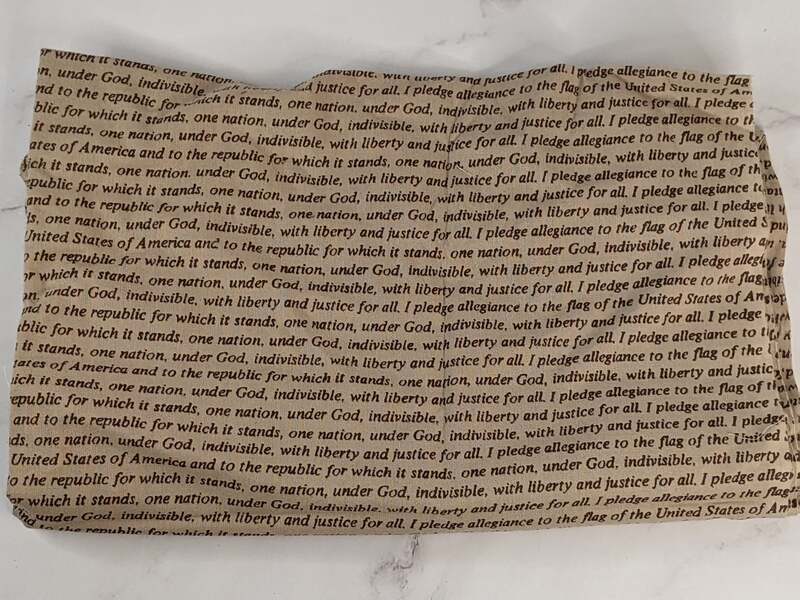 which it stands, one nation, indivisible, with liberty and justice for all. I pledge allegiance to the flag
under God, indivisible, justice for all. I pledge allegiance to the flag of the United States of
to the republic for which it stands, one nation, under God, indivisible, with liberty and justice for all. I pledge
for which it stands, one nation, under God, indivisible, with liberty and justice for all. I pledge allegiance to
it stands, one nation, under God, indivisible, with liberty and justice for all. I pledge allegiance to the flag of the
of America and to the republic for which it stands, one nation, under God, indivisible, with liberty and
it stands, one nation, under God, indivisible, with liberty and justice for all. I pledge allegiance to the flag of
for which it stands, one nation, under God, indivisible, with liberty and justice for all. I pledge allegiance
and to the republic for which it stands, one nation, under God, indivisible, with liberty and justice for all. I pledge
one nation, under God, indivisible, with liberty and justice for all. I pledge allegiance to the flag of the United
United States of America and to the republic for which it stands, one nation, under God, indivisible, with liberty
the republic for which it stands, one nation, under God, indivisible, with liberty and justice for all. I pledge
which it stands, one nation, under God, indivisible, with liberty and justice for all. I pledge allegiance to the flag
under God, indivisible, with liberty and justice for all. I pledge allegiance to the flag of the United States of
to the republic for which it stands, one nation, under God, indivisible, with liberty and justice for all. I pledge
for which it stands, one nation, under God, indivisible, with liberty and justice for all. I pledge allegiance to
it stands, one nation, under God, indivisible, with liberty and justice for all. I pledge allegiance to the flag of the
of America and to the republic for which it stands, one nation, under God, indivisible, with liberty and
it stands, one nation, under God, indivisible, with liberty and justice for all. I pledge allegiance to the flag of
for which it stands, one nation, under God, indivisible, with liberty and justice for all. I pledge allegiance
and to the republic for which it stands, one nation, under God, indivisible, with liberty and justice for all. I pledge
one nation, under God, indivisible, with liberty and justice for all. I pledge allegiance to the flag of the United
United States of America and to the republic for which it stands, one nation, under God, indivisible, with liberty
to the republic for which it stands, one nation, under God, indivisible, with liberty and justice for all. I pledge
for which it stands, one nation, under God, indivisible, with liberty and justice for all. I pledge allegiance to the flag
under God, indivisible, with liberty and justice for all. I pledge allegiance to the flag of the United States of
to the republic for which it stands, one nation